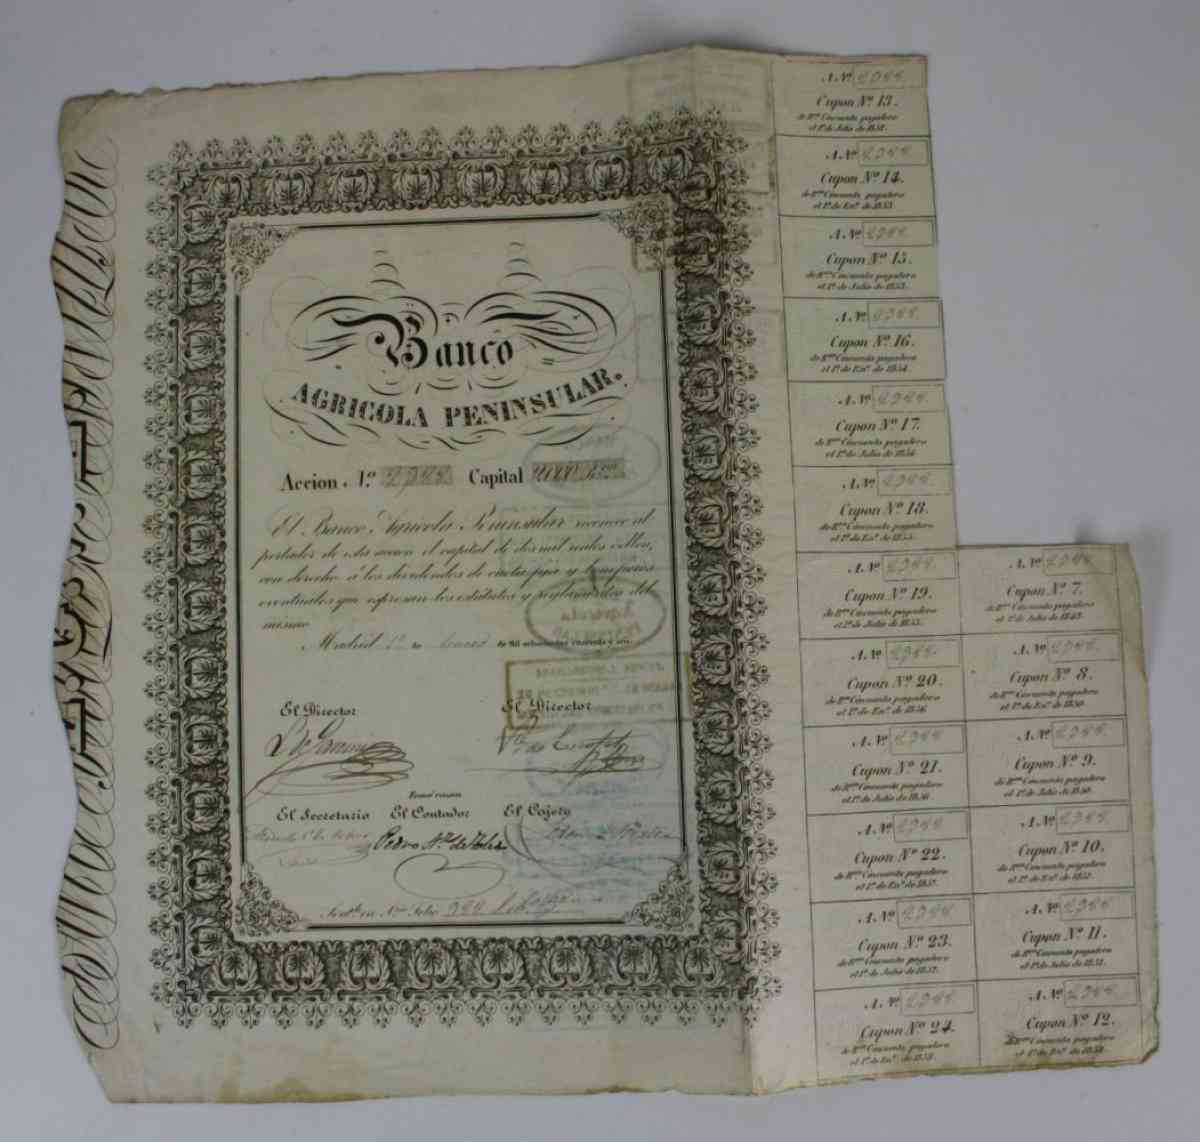 Banco
AGRICOLA PENINSULAR.
Accion. 1.º 2,988 Capital 2000 Rs
El Banco Agricola Peninsular reconoce al
portador de esta accion el capital de dos mil reales vellon,
con derecho á los dividendos de cuota fija y
eventuales que espresan los estatutos y reglamentos del
mismo
Madrid 1.º de de mil ochocientos cuarenta y
El Director
El Director
Tomé razon
El Secretario El Contador El Cajero
Pedro
A. Nº 2988
Cupon Nº 13.
de Rs Cincuenta pagadero
el 1º de Julio de 1852.
A. Nº 2988
Cupon Nº 14.
de Rs Cincuenta pagadero
el 1º de Enº de 1853.
A. Nº 2988
Cupon Nº 15.
de Rs Cincuenta pagadero
el 1º de Julio de 1853.
A. Nº 2988
Cupon Nº 16.
de Rs Cincuenta pagadero
el 1º de Enº de 1854.
A. Nº 2988
Cupon Nº 17.
de Rs Cincuenta pagadero
el 1º de Julio de 1854.
A. Nº 2988
Cupon Nº 18.
de Rs Cincuenta pagadero
el 1º de Enº de 1855.
A. Nº 2988
Cupon Nº 19.
de Rs Cincuenta pagadero
el 1º de Julio de 1855.
A. Nº 2988
Cupon Nº 20.
de Rs Cincuenta pagadero
el 1º de Enº de 1856.
A. Nº 2988
Cupon Nº 21.
de Rs Cincuenta pagadero
el 1º de Julio de 1856.
A. Nº 2988
Cupon Nº 22.
de Rs Cincuenta pagadero
el 1º de Enº de 1857.
A. Nº 2988
Cupon Nº 23.
de Rs Cincuenta pagadero
el 1º de Julio de 1857.
A. Nº 2988
Cupon Nº 24.
de Rs Cincuenta pagadero
el 1º de Enº de 1858.
A. Nº 2988
Cupon Nº 7.
de Rs Cincuenta pagadero
el 1º de Julio de 1849.
A. Nº 2988
Cupon Nº 8.
de Rs Cincuenta pagadero
el 1º de Enº de 1850.
A. Nº 2988
Cupon Nº 9.
de Rs Cincuenta pagadero
el 1º de Julio de 1850.
A. Nº 2988
Cupon Nº 10.
de Rs Cincuenta pagadero
el 1º de Enº de 1851.
A. Nº 2988
Cupon Nº 11.
de Rs Cincuenta pagadero
el 1º de Julio de 1851.
A. Nº 2988
Cupon Nº 12.
de Rs Cincuenta pagadero
el 1º de Enº de 1852.